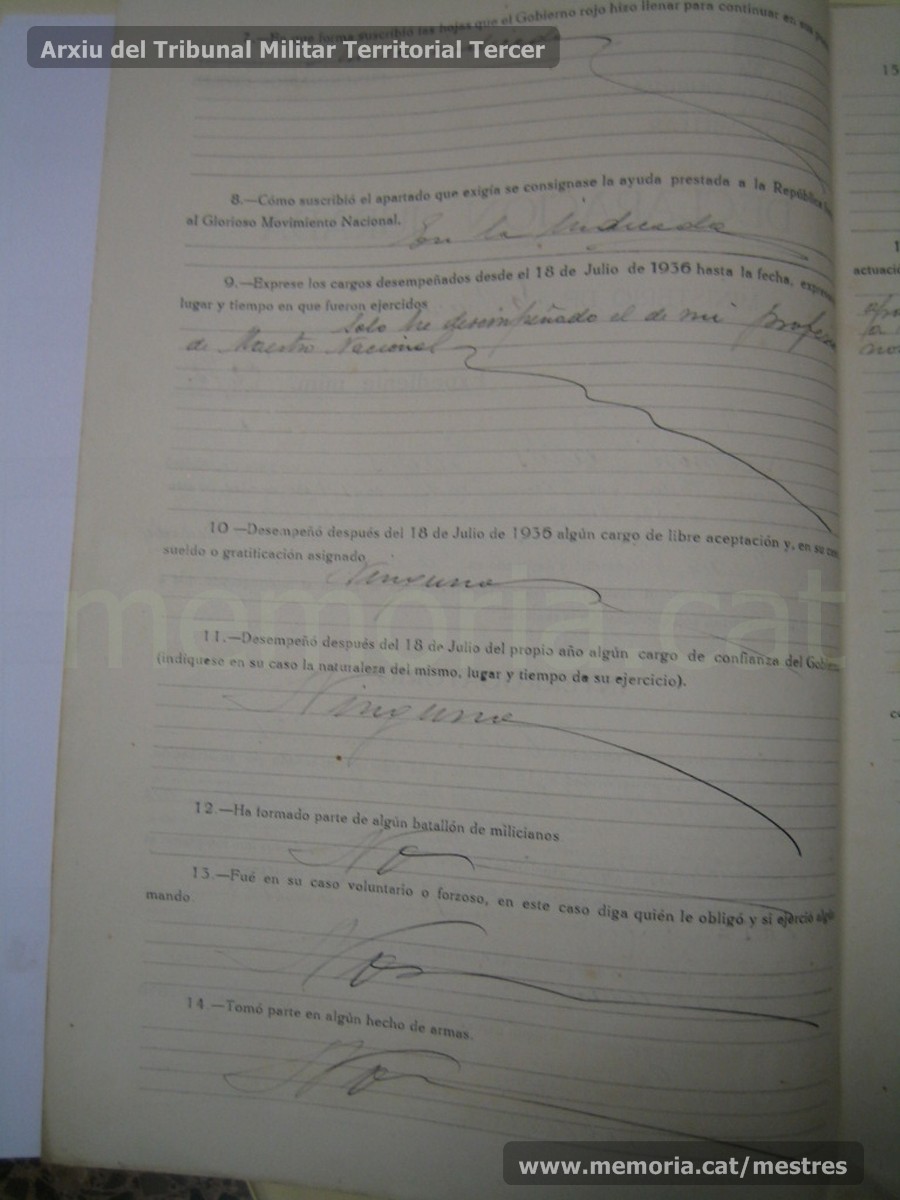 Arxiu del Tribunal Militar Territorial Tercer
forma suscribió las hojas que el Gobierno rojo hizo llenar para continuar en sus
8.—Cómo suscribió el apartado que exigía se consignase la ayuda prestada a la República
al Glorioso Movimiento Nacional.
En la indicada
9.—Exprese los cargos desempeñados desde el 18 de Julio de 1936 hasta la fecha,
lugar y tiempo en que fueron ejercidos
Solo he desempeñado el de mi
de Maestro Nacional
10 —Desempeñó después del 18 de Julio de 1936 algún cargo de libre aceptación y, en su
sueldo o gratificación asignado
Ninguno
11.—Desempeñó después del 18 de Julio del propio año algún cargo de confianza del
(indíquese en su caso la naturaleza del mismo, lugar y tiempo de su ejercicio).
Ninguno
12.—Ha formado parte de algún batallón de milicianos
No
13.—Fué en su caso voluntario o forzoso, en este caso diga quién le obligó y si ejerció
mando.
No
14.—Tomó parte en algún hecho de armas.
No
15
memoria.cat
www.memoria.cat/mestres